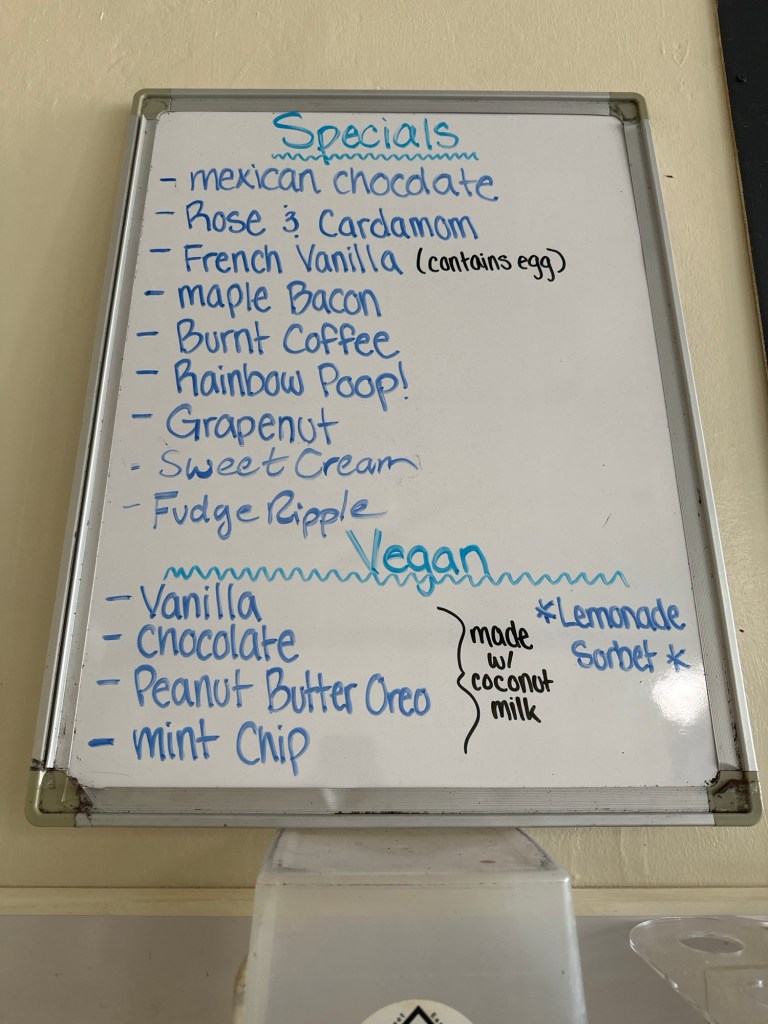 Specials
- mexican chocolate
- Rose & Cardamom
- French Vanilla (contains egg)
- maple Bacon
- Burnt Coffee
- Rainbow Poop!
- Grapenut
- Sweet Cream
- Fudge Ripple
Vegan
- Vanilla
- Chocolate
- Peanut Butter Oreo
- mint Chip
made
w/
coconut
milk
*Lemonade
Sorbet *